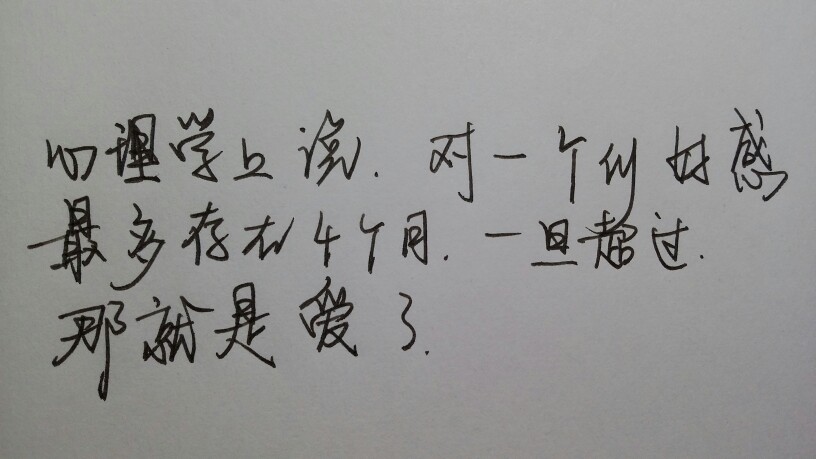 心理学上说.对一个人的好感
最多存在4个月.一旦超过.
那就是爱了.